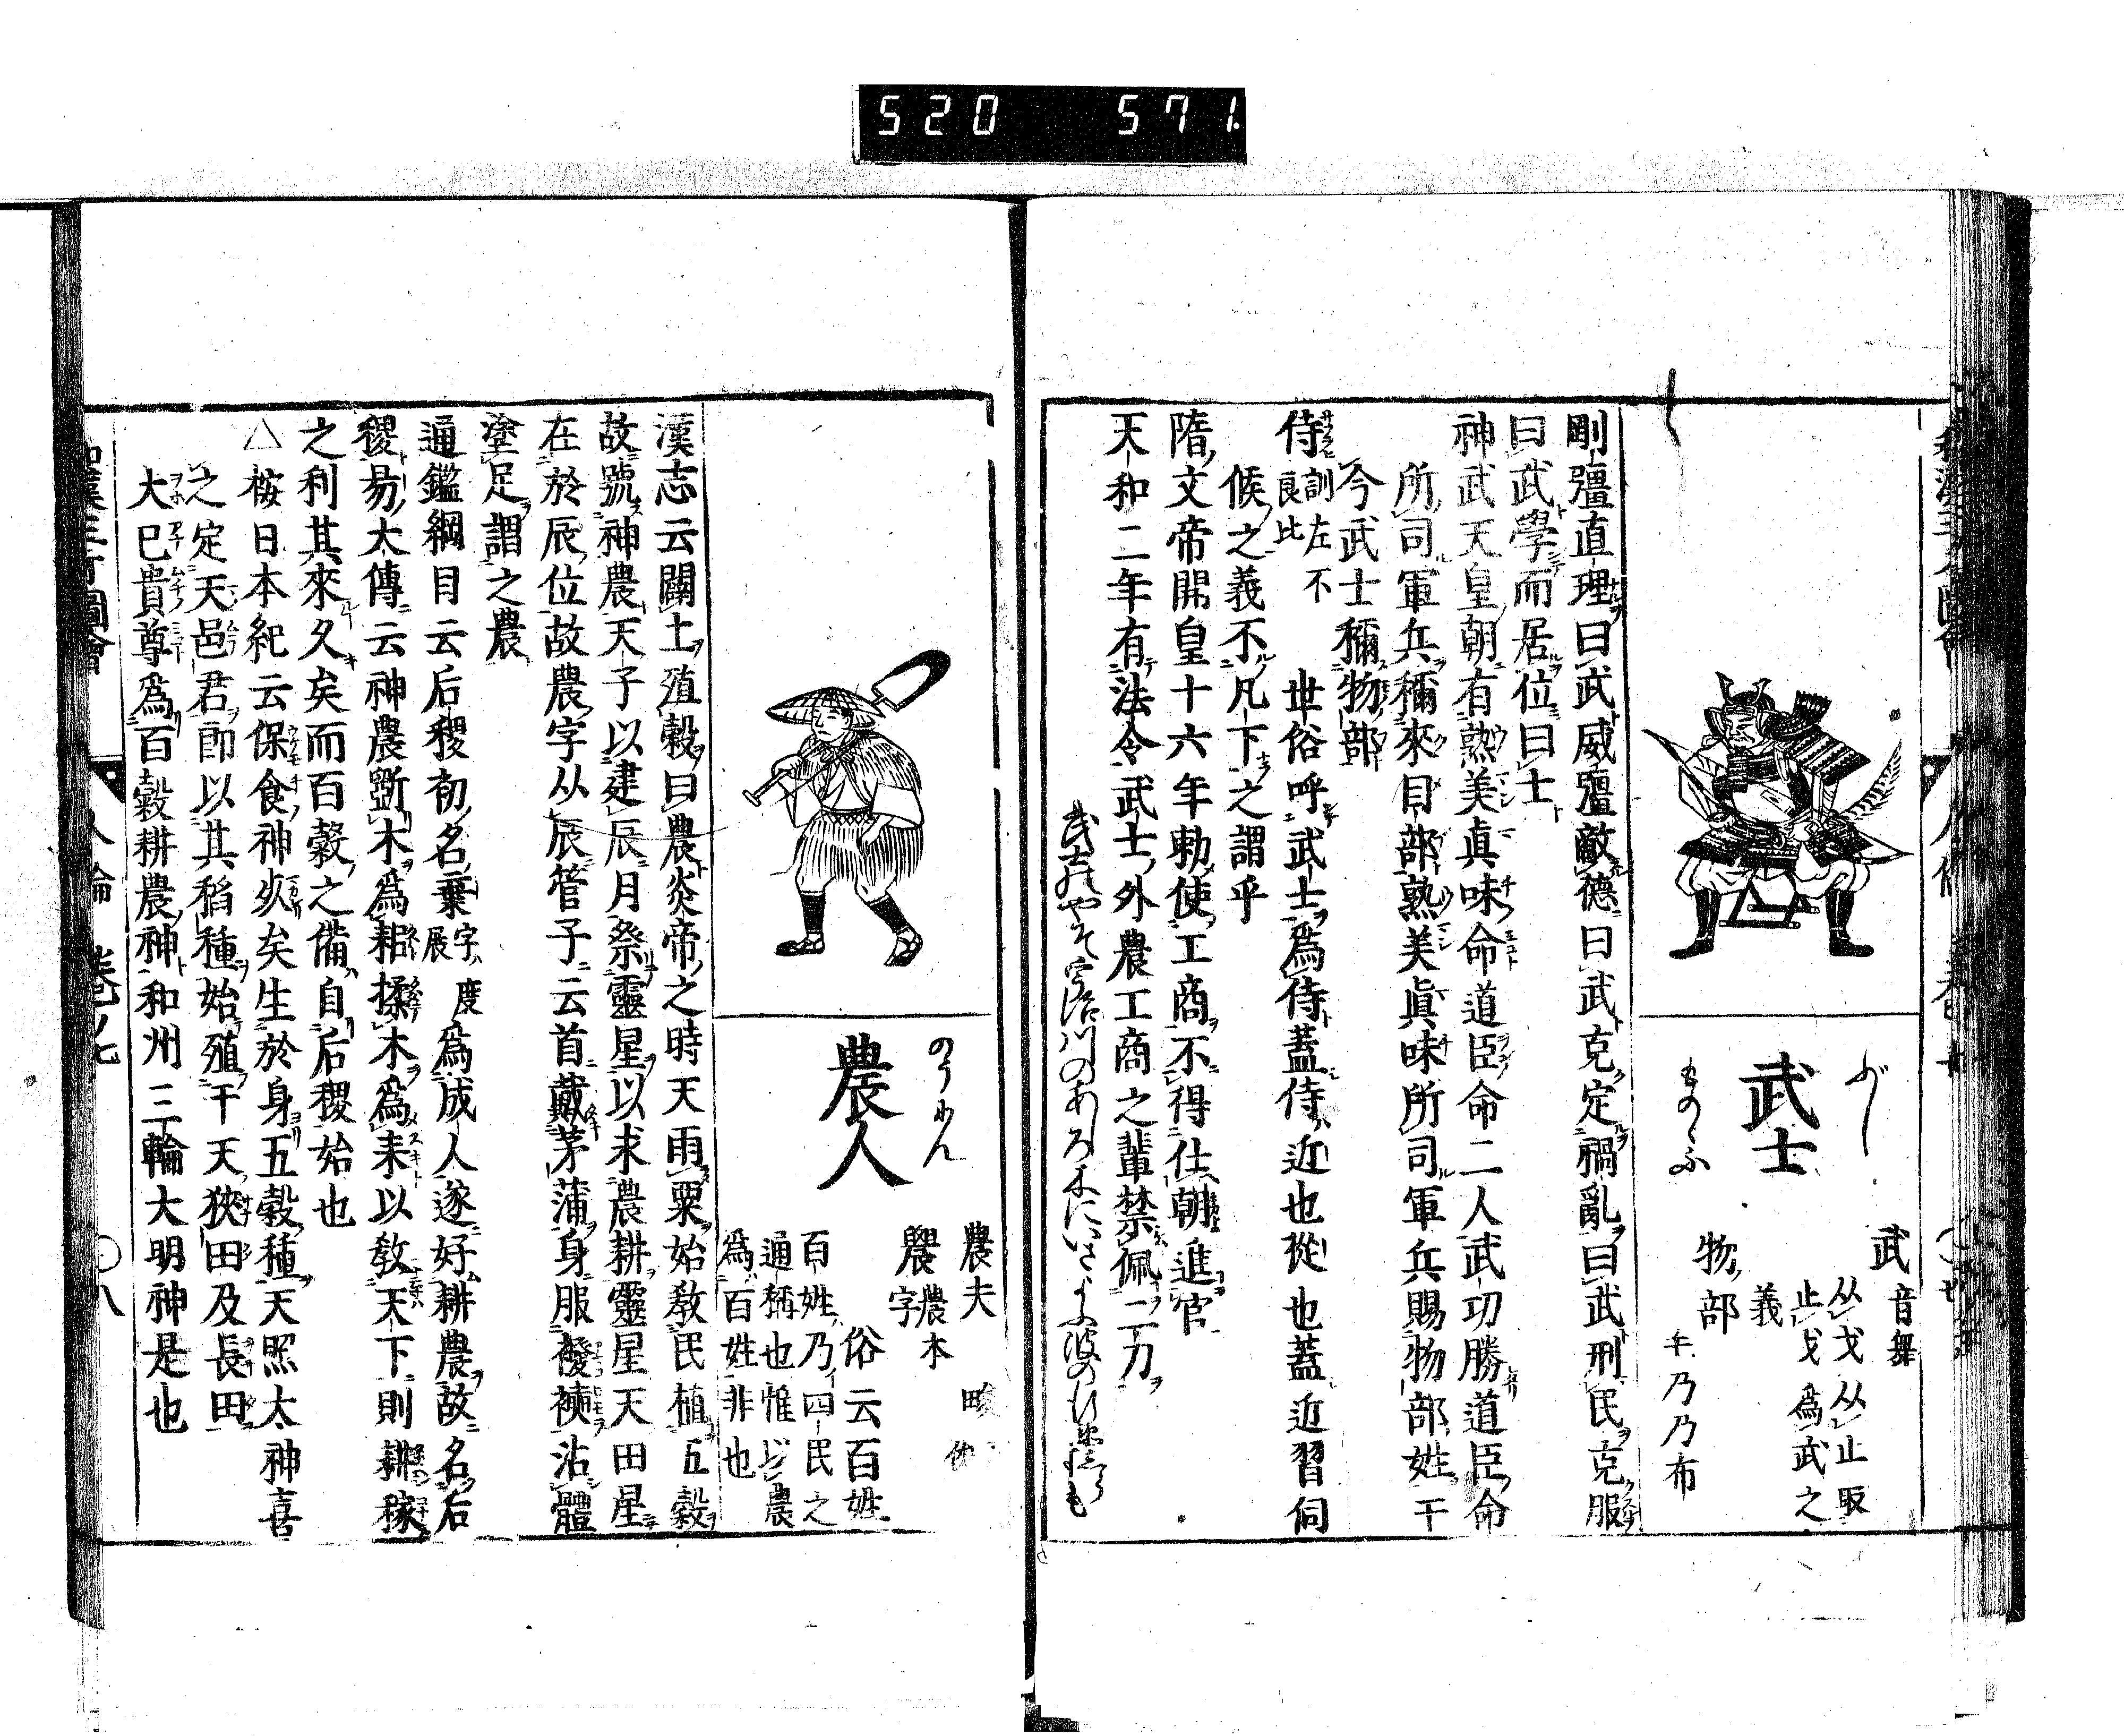 520 571
武士
ぶし
ものゝふ
武音舞
从戈从止取
止戈爲武之
義
物部
乃乃布
剛彊直理曰武威彊敵德曰武克定禍亂曰武刑民克服
曰武學而居位曰士
神武天皇朝有熟美眞味命道臣命二人武功勝道臣命
所司軍兵稱來目部熟美眞味所司軍兵賜物部姓干
今武士稱物部
侍訓左不良比 世俗呼武士爲侍蓋侍近也從也蓋近習伺
候之義不凡下之謂乎
隋文帝開皇十六年勅使工商不得仕朝進官
天和二年有法令武士外農工商之輩禁佩二刀
武士のやそ宇治川のあしろ木にいさよふ波の
農人
のうにん
農夫
農本字
俗云百姓
百姓乃四民之
通稱也惟以農
爲百姓非也
漢志云闢土殖穀曰農炎帝之時天雨粟始敎民植五穀
故號神農天子以建辰月祭靈星以求農耕靈星天田星
在於辰位故農字从辰管子云首戴茅蒲身服襏襫沾體
塗足謂之農
通鑑綱目云后稷初名棄字度辰爲成人遂好耕農故名后
稷易大傳云神農斲木爲耜揉木爲耒以敎天下則耕稼
之利其來久矣而百穀之備自后稷始也
△桉日本紀云保食神死矣生於身五穀種天照太神喜
之定天邑君卽以其稻種始殖于天狹田及長田
大巳貴尊爲百穀耕農神和州三輪大明神是也
人倫 卷之七
〇八